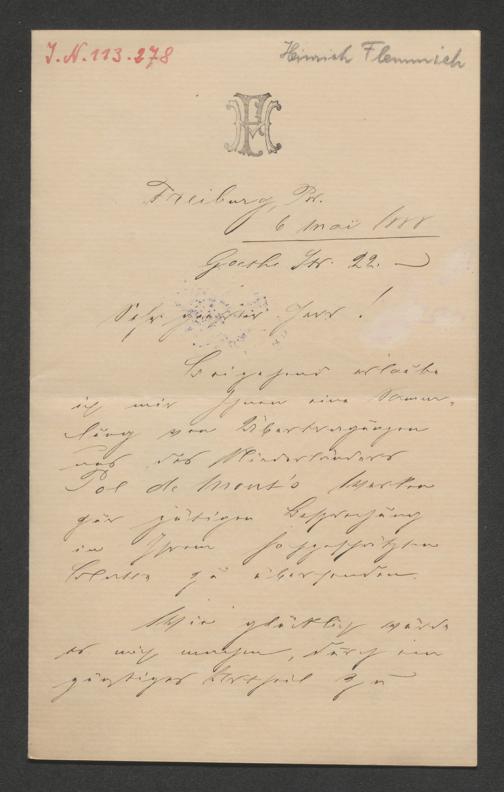 I.N. 113.278
Heinrich Flemmich
HF
Freiburg, Br.
6 Mai 1888
Goethe Str. 22.
Sehr geehrter Herr!
Beigehend erlaube
ich mir Ihnen eine Samm-
lung von Übertragungen
aus des Niederländers
Pol de Mont's Werken
zur gütigen Besprechung
in Ihrem hochgeschätzten
Blatte zu übersenden.
Wie glücklich würde
es mich machen, durch ein
günstiges Urtheil zu